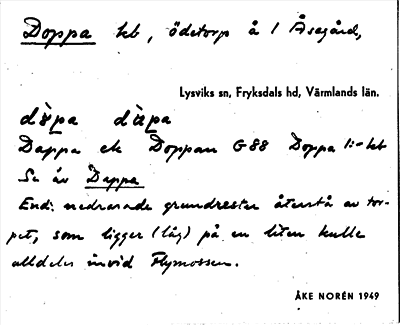 Doppa hb, ödetorp å 1 Åsegård,
Lysviks sn, Fryksdals hd, Värmlands län.
Dappa ek Doppan G88 Doppa l:-hb
Se äv Dappa
End. nedrasade grundrester återstå av tor-
pet, som ligger (låg) på en liten kulle
alldeles invid Flymossen.
ÅKE NORÉN 1949